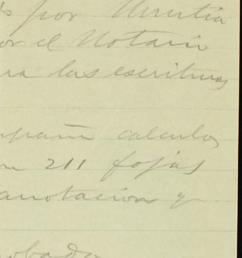 por Urrutia
or el Notario
ra las escrituras
calculos
211 fojas
anotacion y
obado